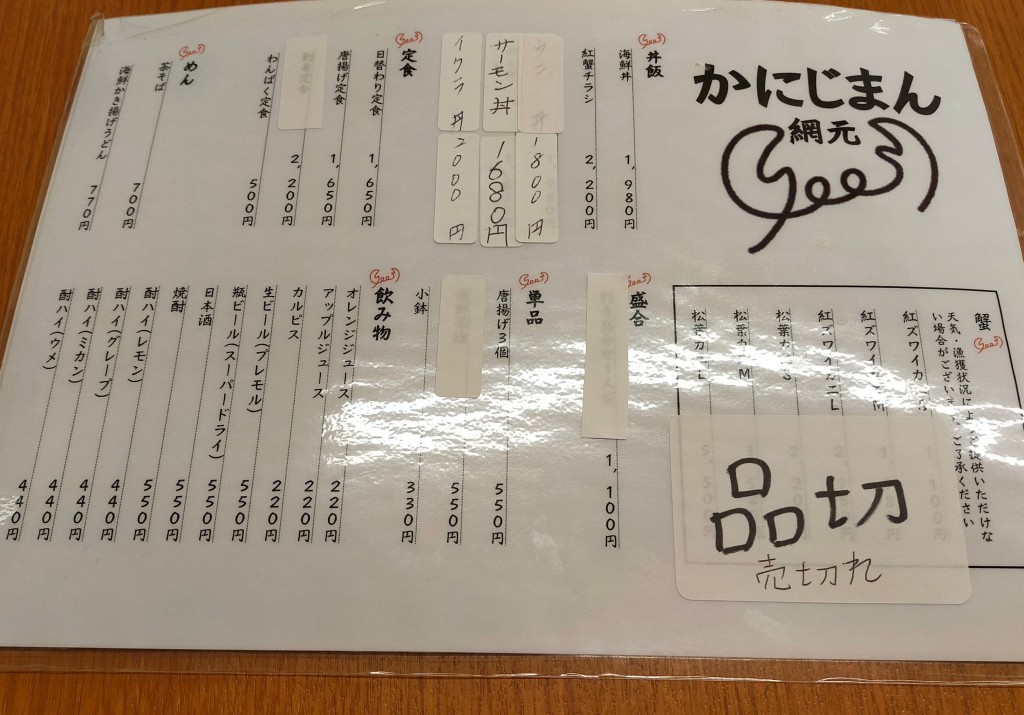 かにじまん
網元
丼飯
海鮮丼 1,980円
紅蟹チラシ 2,200円
丼 1800円
サーモン丼 1680円
イクラ丼 2000円
定食
日替わり定食 1,650円
唐揚げ定食 1,650円
2,200円
わんぱく定食 500円
めん
茶そば 700円
海鮮かき揚げうどん 770円
蟹
天気・漁獲状況によりご提供いただけな
い場合がございます。ご了承ください
紅ズワイガニ
紅ズワイガニM
紅ズワイガニL
松葉ガニS
松葉ガニM
松葉ガニL
品切
売切れ
盛合
1,100円
単品
唐揚げ3個 550円
550円
小鉢 330円
飲み物
オレンジジュース 220円
アップルジュース 220円
カルピス 220円
生ビール(プレモル) 550円
瓶ビール(スーパードライ) 550円
日本酒 550円
焼酎 550円
酎ハイ(レモン) 550円
酎ハイ(グレープ) 440円
酎ハイ(ミカン) 440円
酎ハイ(ウメ) 440円
440円